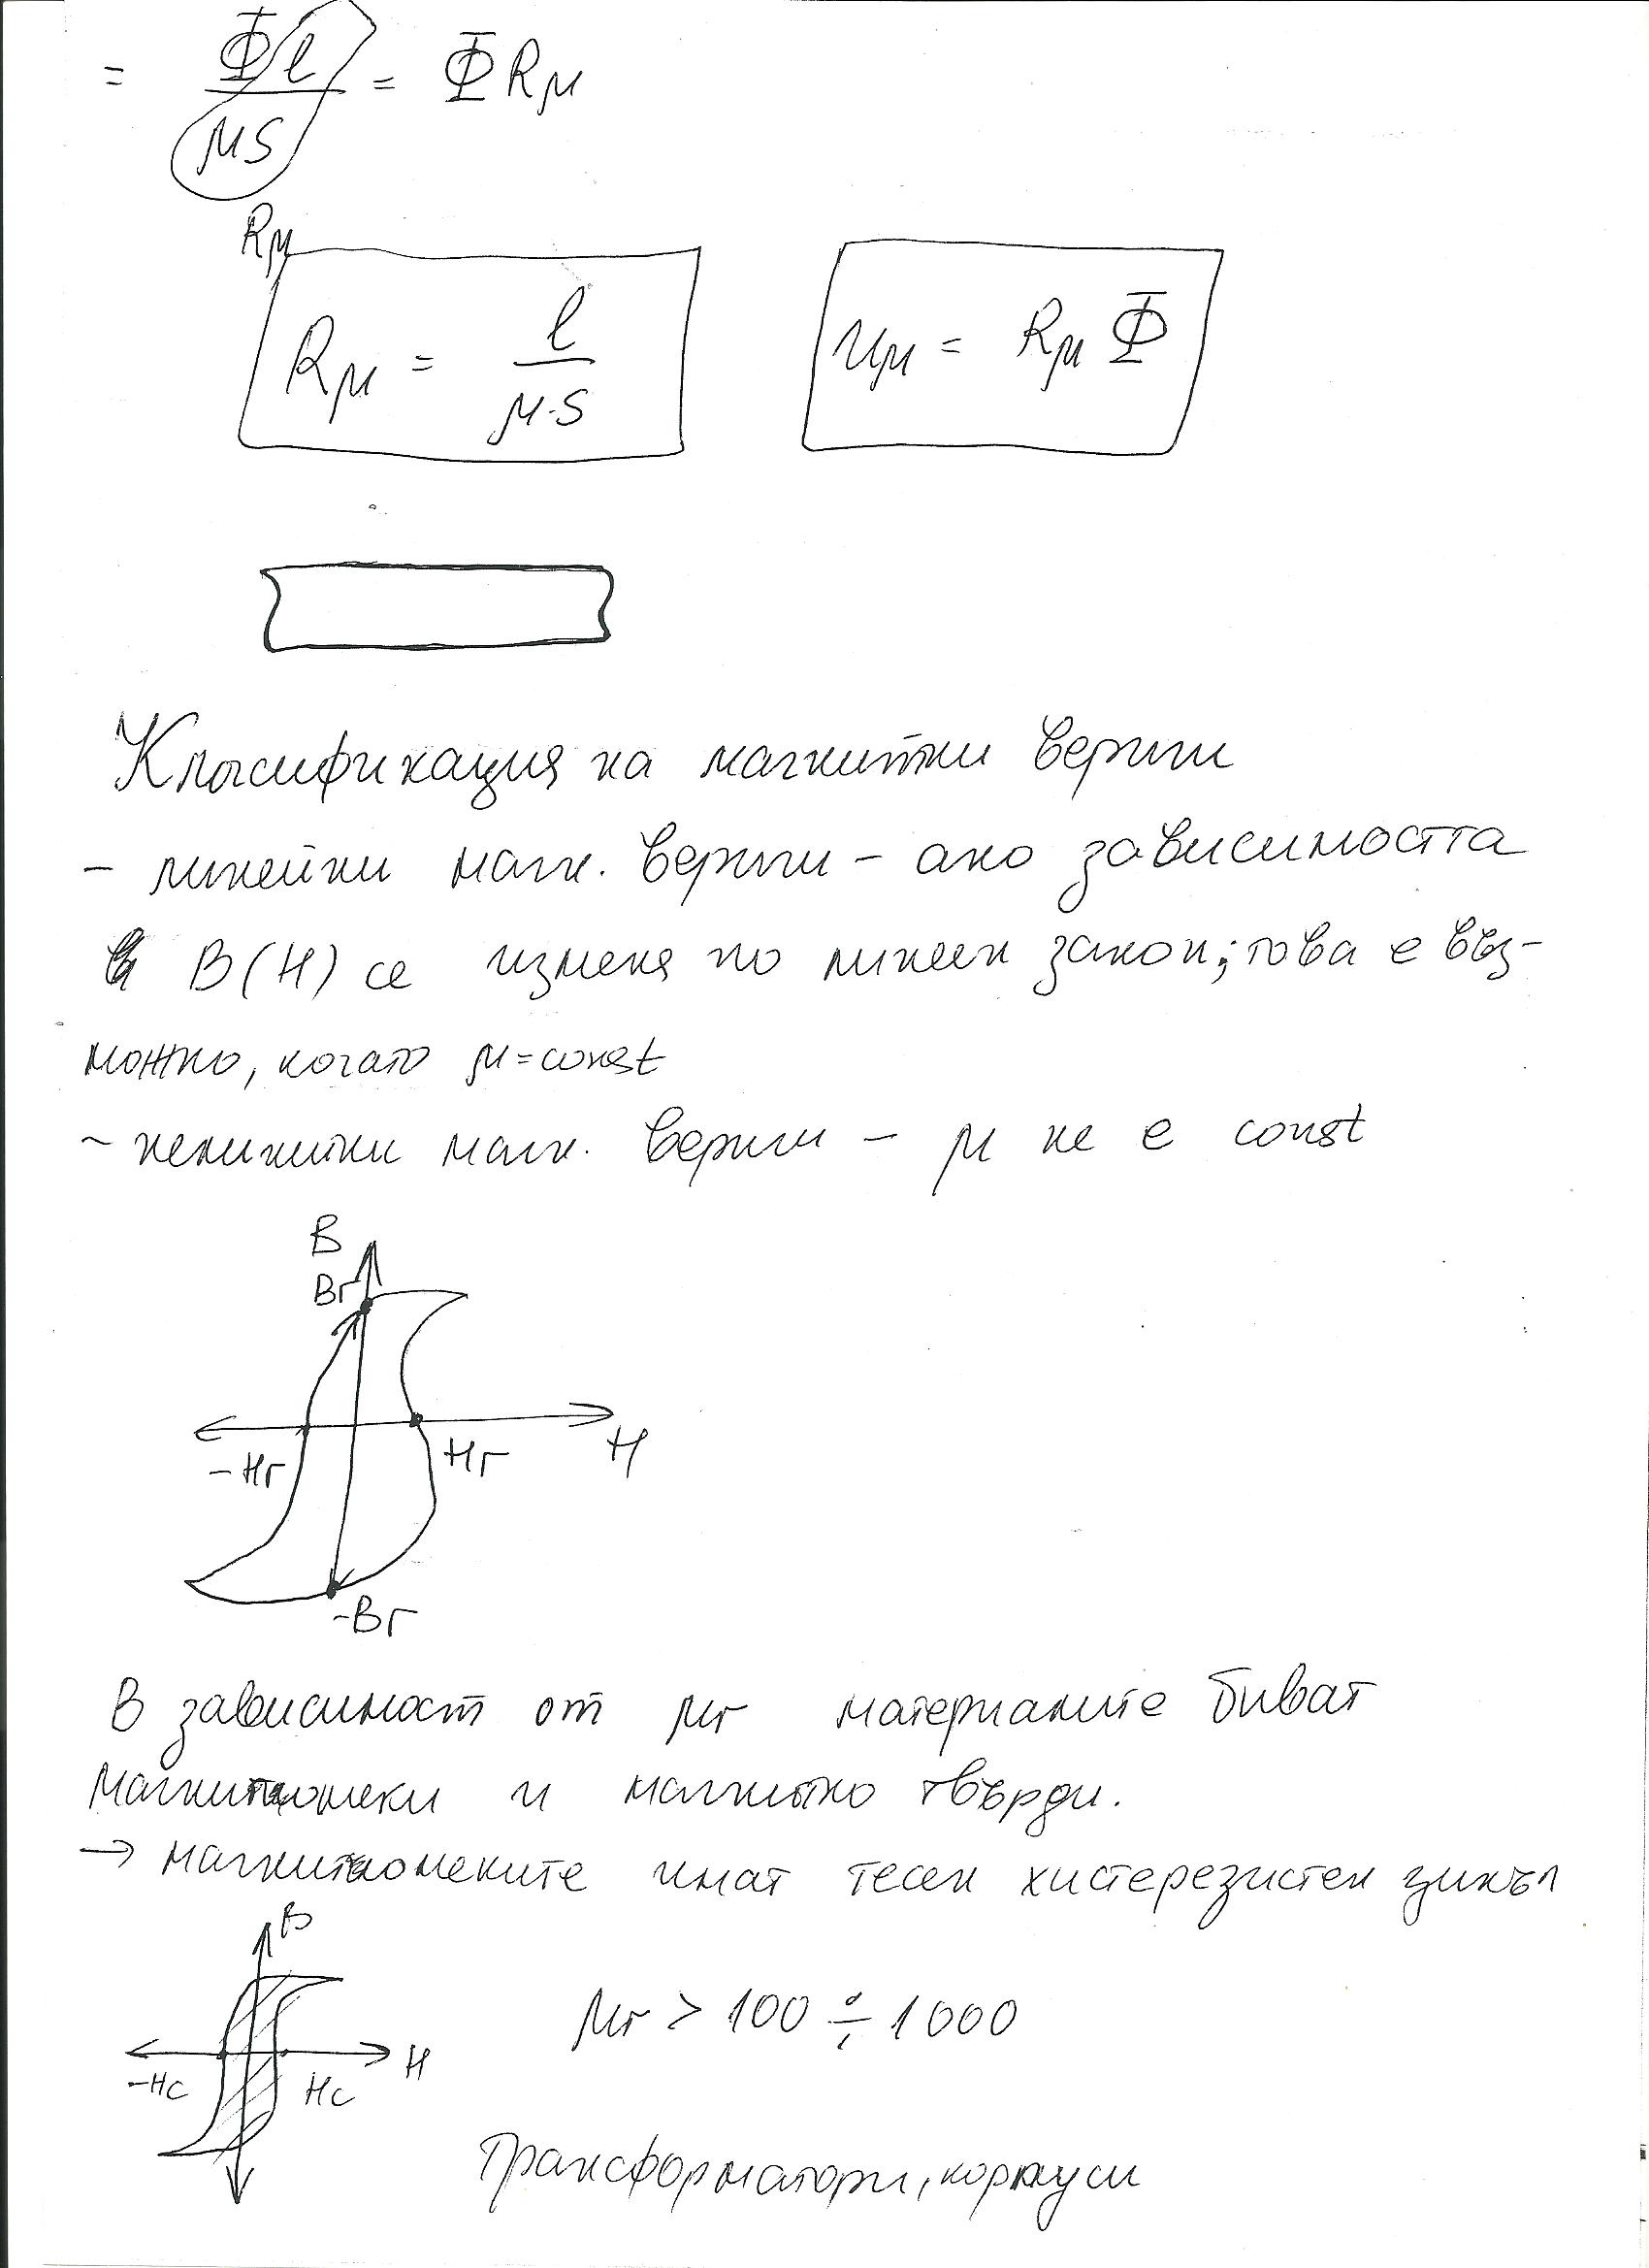 = Φl / μS = Φ Rμ
Rμ
Rμ = l / μ·S
Uμ = Rμ Φ
Класификация на магнитни вериги
- линейни магн. вериги - ако зависимостта
B(H) се изменя по линеен закон; това е въз-
можно, когато μ=const
- нелинитни магн. вериги - μ не е const
B
Br
-Hr
Hr
H
-Br
В зависимост от μr материалите биват
магнитномеки и магнитно твърди.
→ магнитномеките имат тесен хистерезистен цикъл
B
-Hc
Hc
H
μr > 100 ÷ 1000
Трансформатори, корпуси